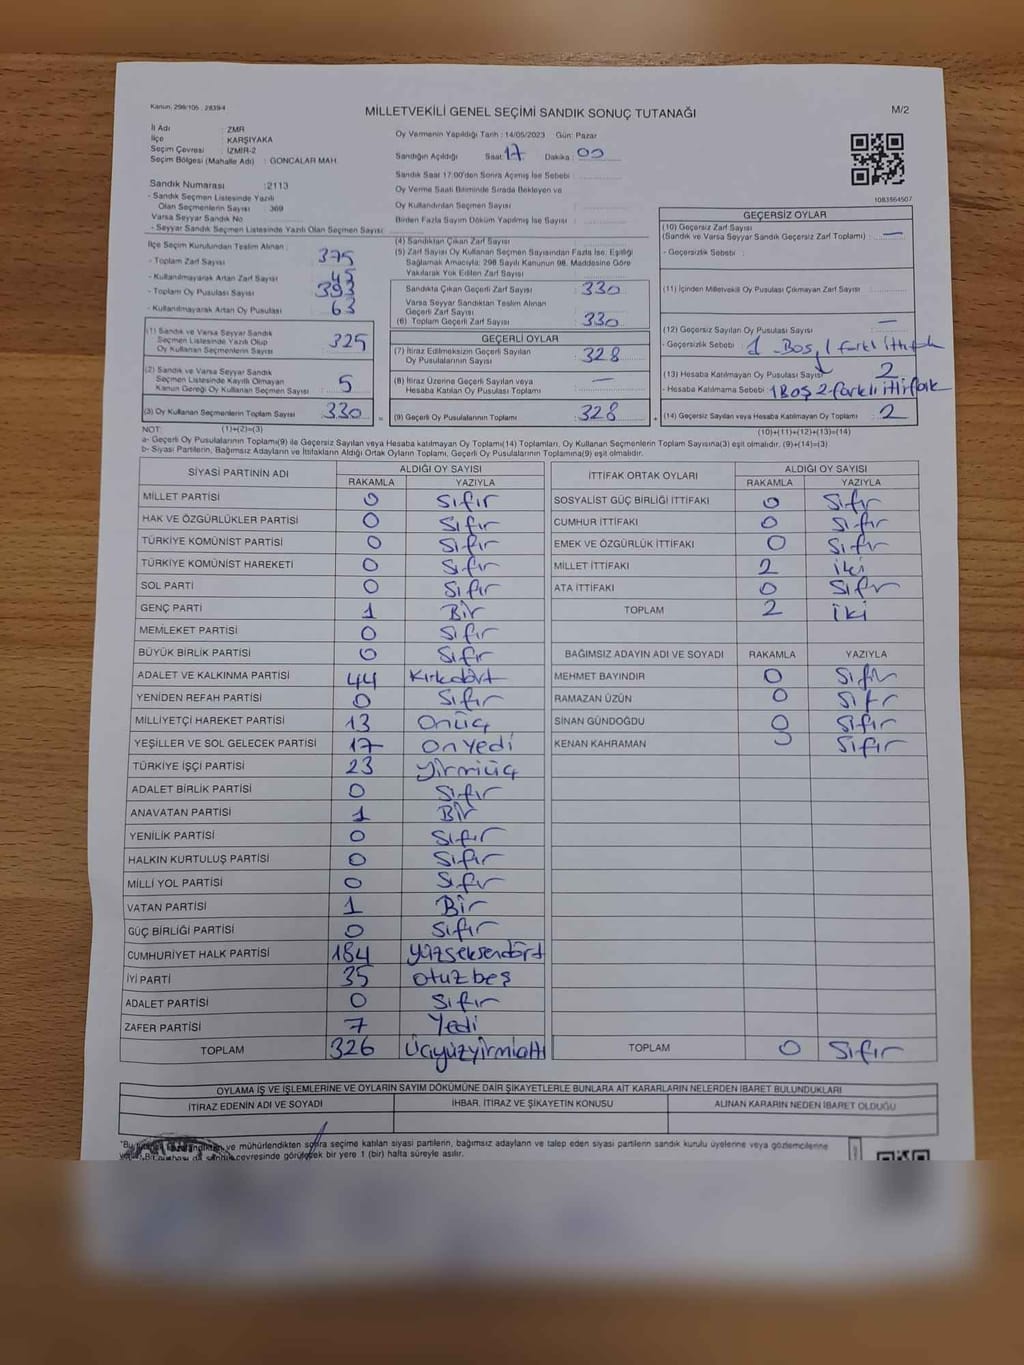 Kanun, 298/105, 2839/4
MİLLETVEKİLİ GENEL SEÇİMİ SANDIK SONUÇ TUTANAĞI
M/2
İl Adı : ZMR
İlçe : KARŞIYAKA
Seçim Çevresi : İZMİR-2
Seçim Bölgesi (Mahalle Adı) : GONCALAR MAH.
Oy Vermenin Yapıldığı Tarih : 14/05/2023 Gün: Pazar
Sandığın Açıldığı Saat : 17 Dakika : 00
Sandık Saat 17:00'den Sonra Açımış İse Sebebi :
Oy Verme Saati Bitiminde Sırada Bekleyen ve
Oy Kullandırılan Seçmen Sayısı :
Birden Fazla Sayım Döküm Yapılmış İse Sayısı :
1083564507
Sandık Numarası : 2113
- Sandık Seçmen Listesinde Yazılı
Olan Seçmenlerin Sayısı : 369
Varsa Seyyar Sandık No
- Seyyar Sandık Seçmen Listesinde Yazılı Olan Seçmen Sayısı :
İlçe Seçim Kurulundan Teslim Alınan :
- Toplam Zarf Sayısı : 375
- Kullanılmayarak Artan Zarf Sayısı : 45
- Toplam Oy Pusulası Sayısı : 393
- Kullanılmayarak Artan Oy Pusulası : 63
(1) Sandık ve Varsa Seyyar Sandık
Seçmen Listesinde Yazılı Olup
Oy Kullanan Seçmenlerin Sayısı : 325
(2) Sandık ve Varsa Seyyar Sandık
Seçmen Listesinde Kayıtlı Olmayan
Kanun Gereği Oy Kullanan Seçmen Sayısı : 5
(3) Oy Kullanan Seçmenlerin Toplam Sayısı : 330
(4) Sandıktan Çıkan Zarf Sayısı :
(5) Zarf Sayısı Oy Kullanan Seçmen Sayısından Fazla İse, Eşitliği
Sağlamak Amacıyla; 298 Sayılı Kanunun 98. Maddesine Göre
Yakılarak Yok Edilen Zarf Sayısı :
Sandıkta Çıkan Geçerli Zarf Sayısı : 330
Varsa Seyyar Sandıktan Teslim Alınan
Geçerli Zarf Sayısı :
(6) Toplam Geçerli Zarf Sayısı : 330
GEÇERLİ OYLAR
(7) İtiraz Edilmeksizin Geçerli Sayılan
Oy Pusulalarının Sayısı : 328
(8) İtiraz Üzerine Geçerli Sayılan veya
Hesaba Katılan Oy Pusulası Toplamı : —
(9) Geçerli Oy Pusulalarının Toplamı : 328
GEÇERSİZ OYLAR
(10) Geçersiz Zarf Sayısı
(Sandık ve Varsa Seyyar Sandık Geçersiz Zarf Toplamı) : —
- Geçersizlik Sebebi :
(11) İçinden Milletvekili Oy Pusulası Çıkmayan Zarf Sayısı :
(12) Geçersiz Sayılan Oy Pusulası Sayısı : —
- Geçersizlik Sebebi : 1 Boş, 1 farklı ittifak
(13) Hesaba Katılmayan Oy Pusulası Sayısı : 2
- Hesaba Katılmama Sebebi : 1 Boş 2 farklı ittifak
(14) Geçersiz Sayılan veya Hesaba Katılmayan Oy Toplamı : 2
NOT: (1)+(2)=(3)
(10)+(11)+(12)+(13)=(14)
a- Geçerli Oy Pusulalarının Toplamı(9) ile Geçersiz Sayılan veya Hesaba katılmayan Oy Toplamı(14) Toplamları, Oy Kullanan Seçmenlerin Toplam Sayısına(3) eşit olmalıdır. (9)+(14)=(3)
b- Siyasi Partilerin, Bağımsız Adayların ve İttifakların Aldığı Ortak Oyların Toplamı, Geçerli Oy Pusulalarının Toplamına(9) eşit olmalıdır.
SİYASİ PARTİNİN ADI ALDIĞI OY SAYISI
RAKAMLA YAZIYLA
MİLLET PARTİSİ 0 Sıfır
HAK VE ÖZGÜRLÜKLER PARTİSİ 0 Sıfır
TÜRKİYE KOMÜNİST PARTİSİ 0 Sıfır
TÜRKİYE KOMÜNİST HAREKETİ 0 Sıfır
SOL PARTİ 0 Sıfır
GENÇ PARTİ 1 Bir
MEMLEKET PARTİSİ 0 Sıfır
BÜYÜK BİRLİK PARTİSİ 0 Sıfır
ADALET VE KALKINMA PARTİSİ 44 Kırkdört
YENİDEN REFAH PARTİSİ 0 Sıfır
MİLLİYETÇİ HAREKET PARTİSİ 13 Onüç
YEŞİLLER VE SOL GELECEK PARTİSİ 17 Onyedi
TÜRKİYE İŞÇİ PARTİSİ 23 Yirmiüç
ADALET BİRLİK PARTİSİ 0 Sıfır
ANAVATAN PARTİSİ 1 Bir
YENİLİK PARTİSİ 0 Sıfır
HALKIN KURTULUŞ PARTİSİ 0 Sıfır
MİLLİ YOL PARTİSİ 0 Sıfır
VATAN PARTİSİ 1 Bir
GÜÇ BİRLİĞİ PARTİSİ 0 Sıfır
CUMHURİYET HALK PARTİSİ 184 Yüzseksendört
İYİ PARTİ 35 Otuzbeş
ADALET PARTİSİ 0 Sıfır
ZAFER PARTİSİ 7 Yedi
TOPLAM 326 Üçyüzyirmialtı
İTTİFAK ORTAK OYLARI ALDIĞI OY SAYISI
RAKAMLA YAZIYLA
SOSYALİST GÜÇ BİRLİĞİ İTTİFAKI 0 Sıfır
CUMHUR İTTİFAKI 0 Sıfır
EMEK VE ÖZGÜRLÜK İTTİFAKI 0 Sıfır
MİLLET İTTİFAKI 2 iki
ATA İTTİFAKI 0 Sıfır
TOPLAM 2 iki
BAĞIMSIZ ADAYIN ADI VE SOYADI RAKAMLA YAZIYLA
MEHMET BAYINDIR 0 Sıfır
RAMAZAN ÜZÜN 0 Sıfır
SİNAN GÜNDOĞDU 0 Sıfır
KENAN KAHRAMAN 0 Sıfır
TOPLAM 0 Sıfır
OYLAMA İŞ VE İŞLEMLERİNE VE OYLARIN SAYIM DÖKÜMÜNE DAİR ŞİKAYETLERLE BUNLARA AİT KARARLARIN NELERDEN İBARET BULUNDUKLARI
İTİRAZ EDENİN ADI VE SOYADI İHBAR, İTİRAZ VE ŞİKAYETİN KONUSU ALINAN KARARIN NEDEN İBARET OLDUĞU
ve mühürlendikten sonra seçime katılan siyasi partilerin, bağımsız adayların ve talep eden siyasi partilerin sandık kurulu üyelerine veya gözlemcilerine
çevresinde görülecek bir yere 1 (bir) hafta süreyle asılır.